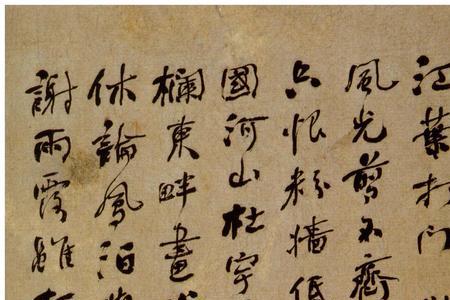 江葉打門
風光剪不齊
只恨粉墻低
國河山杜宇
欄東畔畫
休論鳳泊
謝雨露雖